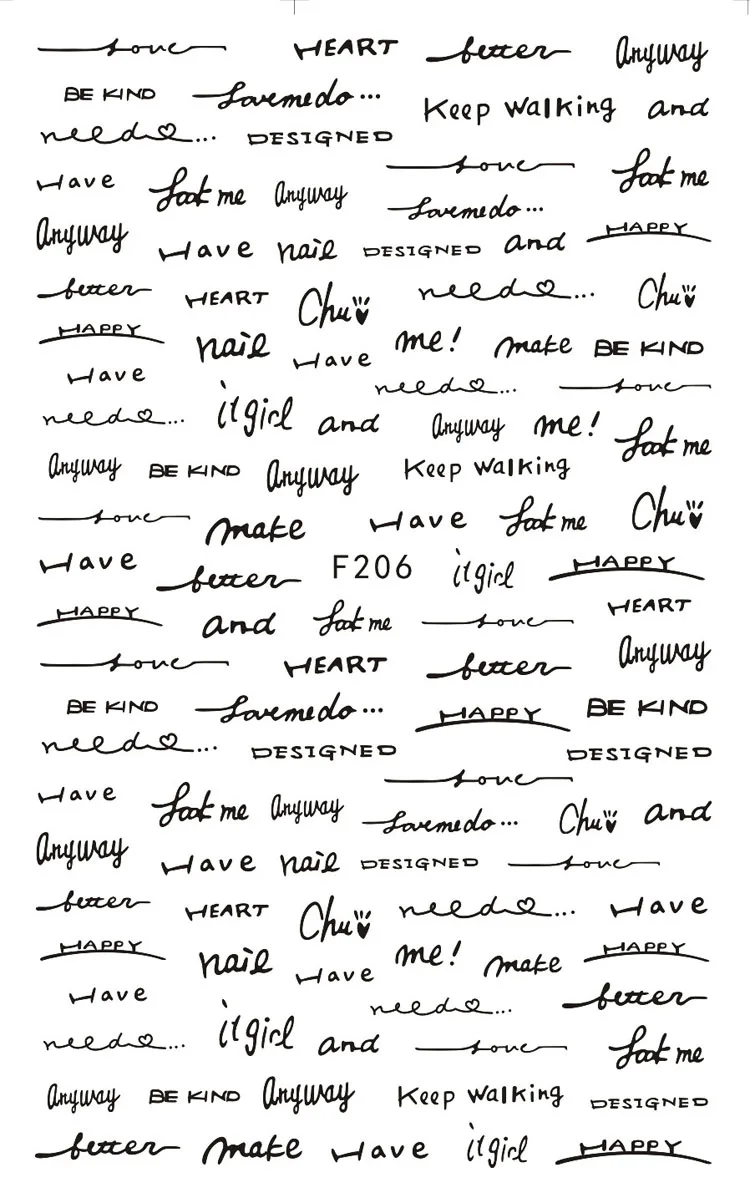 love HEART better Anyway
BE KIND Lovemedo... Keep Walking and
need... DESIGNED
Have look me Anyway love look me
Lovemedo...
Anyway Have nail DESIGNED and HAPPY
better HEART Chu need... Chu
HAPPY nail Have me! make BE KIND
Have need... love
need... it girl and Anyway me! look me
Anyway BE KIND Anyway Keep Walking
love make Have look me Chu
Have better F206 it girl HAPPY
HAPPY and look me love HEART
love HEART better Anyway
BE KIND Lovemedo... HAPPY BE KIND
need... DESIGNED DESIGNED
love
Have look me Anyway Lovemedo... Chu and
Anyway Have nail DESIGNED love
better HEART Chu need... Have
HAPPY nail Have me! make HAPPY
Have need... better
need... it girl and love look me
Anyway BE KIND Anyway Keep Walking DESIGNED
better make Have it girl HAPPY